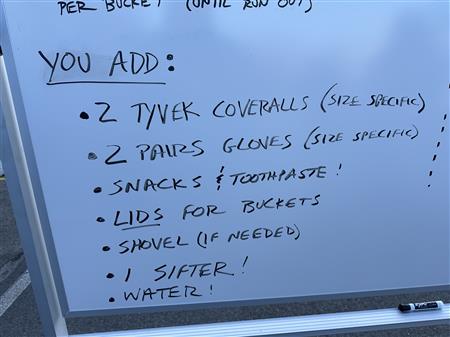 PER BUCKET (UNTIL RUN OUT)
YOU ADD:
• 2 TYVEK COVERALLS (SIZE SPECIFIC)
• 2 PAIRS GLOVES (SIZE SPECIFIC)
• SNACKS & TOOTHPASTE!
• LIDS FOR BUCKETS
• SHOVEL (IF NEEDED)
• 1 SIFTER!
• WATER!